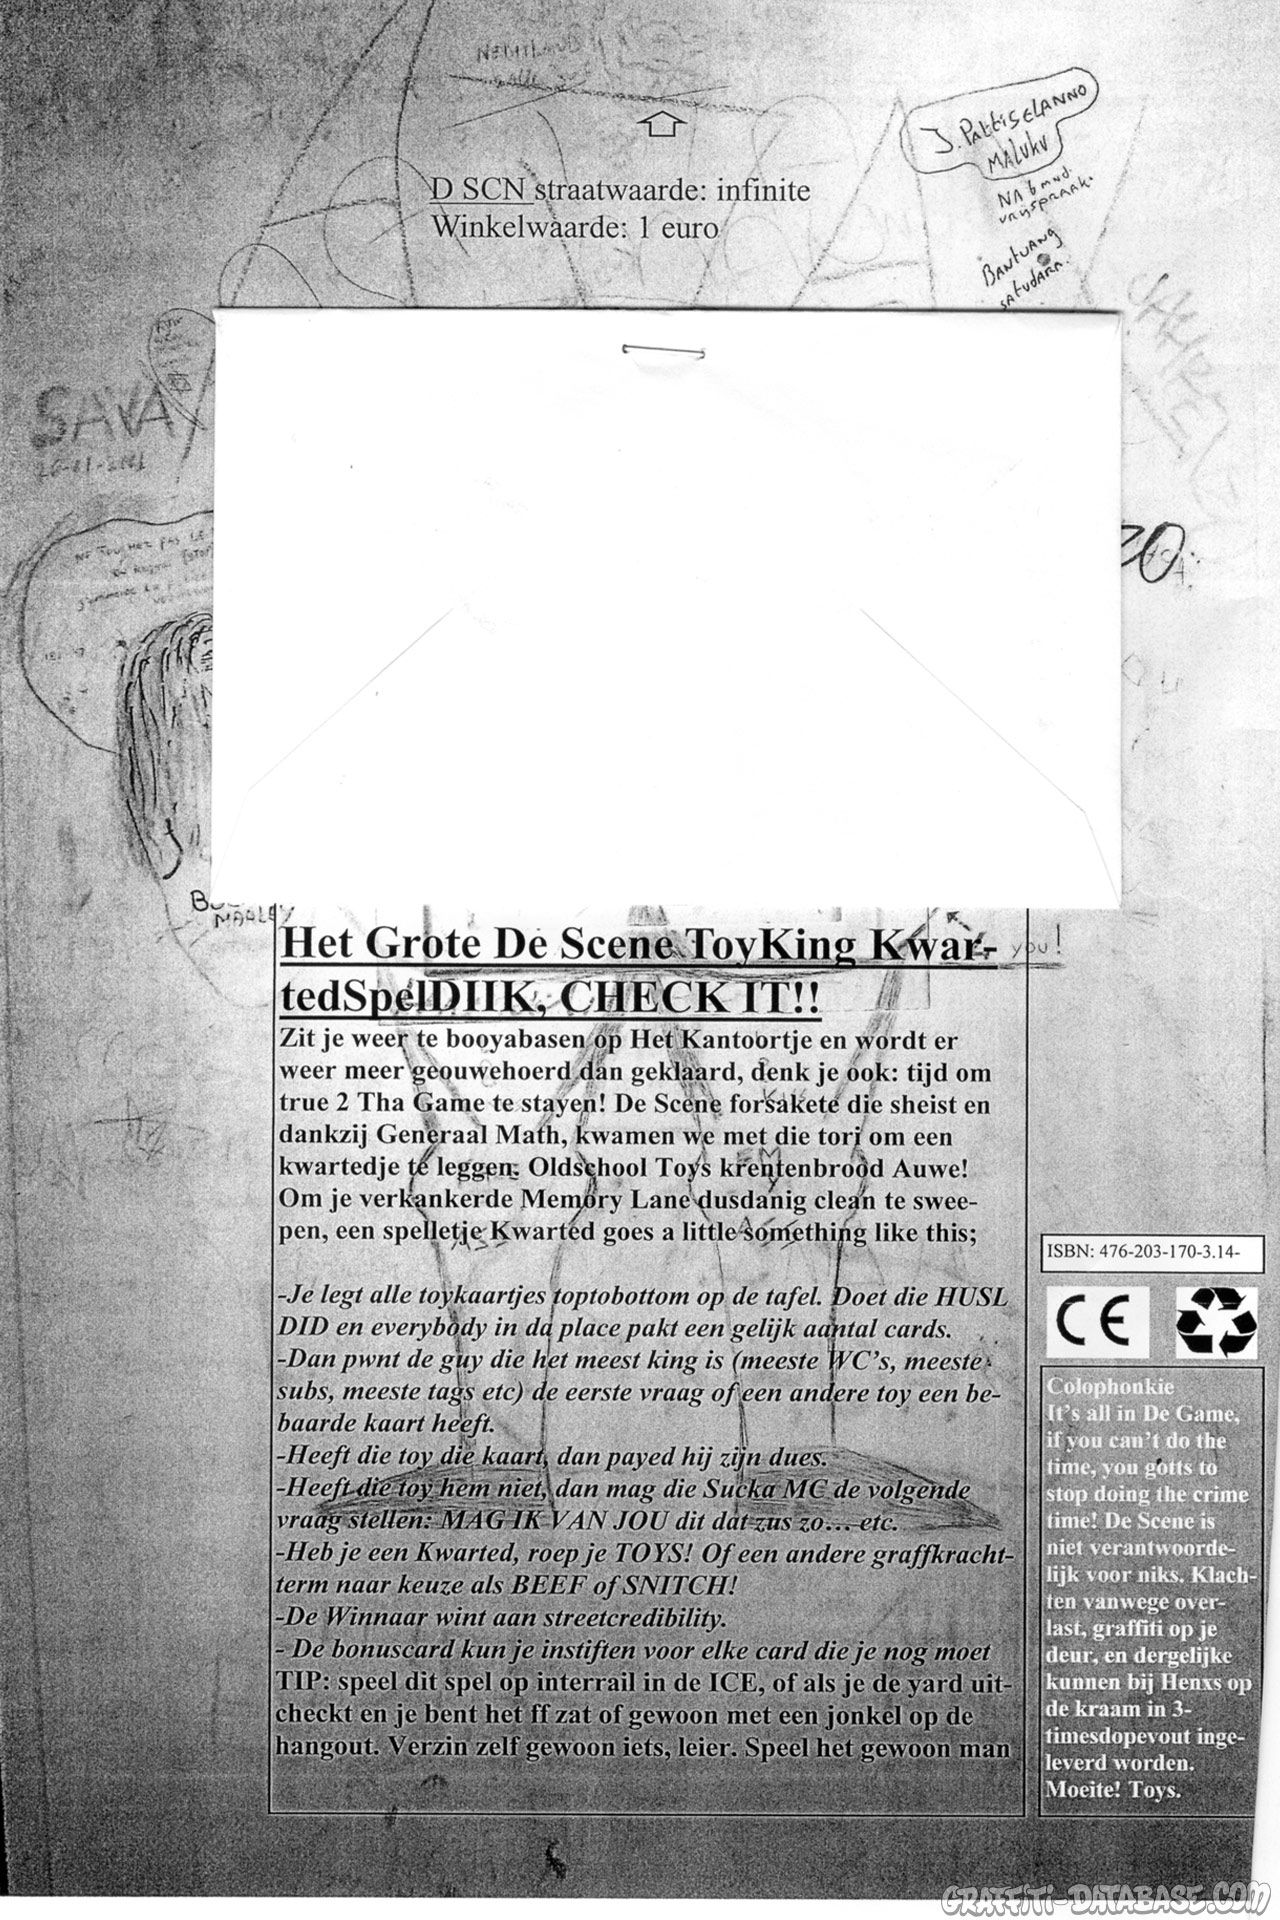 J. Pattiselanno
MALUKU
NA 6 mnd.
vrijspraak.
D SCN straatwaarde: infinite
Winkelwaarde: 1 euro
BANTUANG
satudarа.
SAVA
26-01-2001
NE TOUCHEZ PAS LE
MARLEY
you!
Het Grote De Scene ToyKing Kwar-
tedSpelDIIK, CHECK IT!!
Zit je weer te booyabasen op Het Kantoortje en wordt er
weer meer geouwehoerd dan geklaard, denk je ook: tijd om
true 2 Tha Game te stayen! De Scene forsakete die sheist en
dankzij Generaal Math, kwamen we met die tori om een
kwartedje te leggen. Oldschool Toys krentenbrood Auwe!
Om je verkankerde Memory Lane dusdanig clean te swee-
pen, een spelletje Kwarted goes a little something like this;
-Je legt alle toykaartjes toptobottom op de tafel. Doet die HUSL
DID en everybody in da place pakt een gelijk aantal cards.
-Dan pwnt de guy die het meest king is (meeste WC's, meeste
subs, meeste tags etc) de eerste vraag of een andere toy een be-
baarde kaart heeft.
-Heeft die toy die kaart, dan payed hij zijn dues.
-Heeft die toy hem niet, dan mag die Sucka MC de volgende
vraag stellen: MAG IK VAN JOU dit dat zus zo... etc.
-Heb je een Kwarted, roep je TOYS! Of een andere graffkracht-
term naar keuze als BEEF of SNITCH!
-De Winnaar wint aan streetcredibility.
- De bonuscard kun je instiften voor elke card die je nog moet
TIP: speel dit spel op interrail in de ICE, of als je de yard uit-
checkt en je bent het ff zat of gewoon met een jonkel op de
hangout. Verzin zelf gewoon iets, leier. Speel het gewoon man
ISBN: 476-203-170-3.14-
CE
Colophonkie
It's all in De Game,
if you can't do the
time, you gotts to
stop doing the crime
time! De Scene is
niet verantwoorde-
lijk voor niks. Klach-
ten vanwege over-
last, graffiti op je
deur, en dergelijke
kunnen bij Henxs op
de kraam in 3-
timesdopevout inge-
leverd worden.
Moeite! Toys.
GRAFFITI-DATABASE.COM